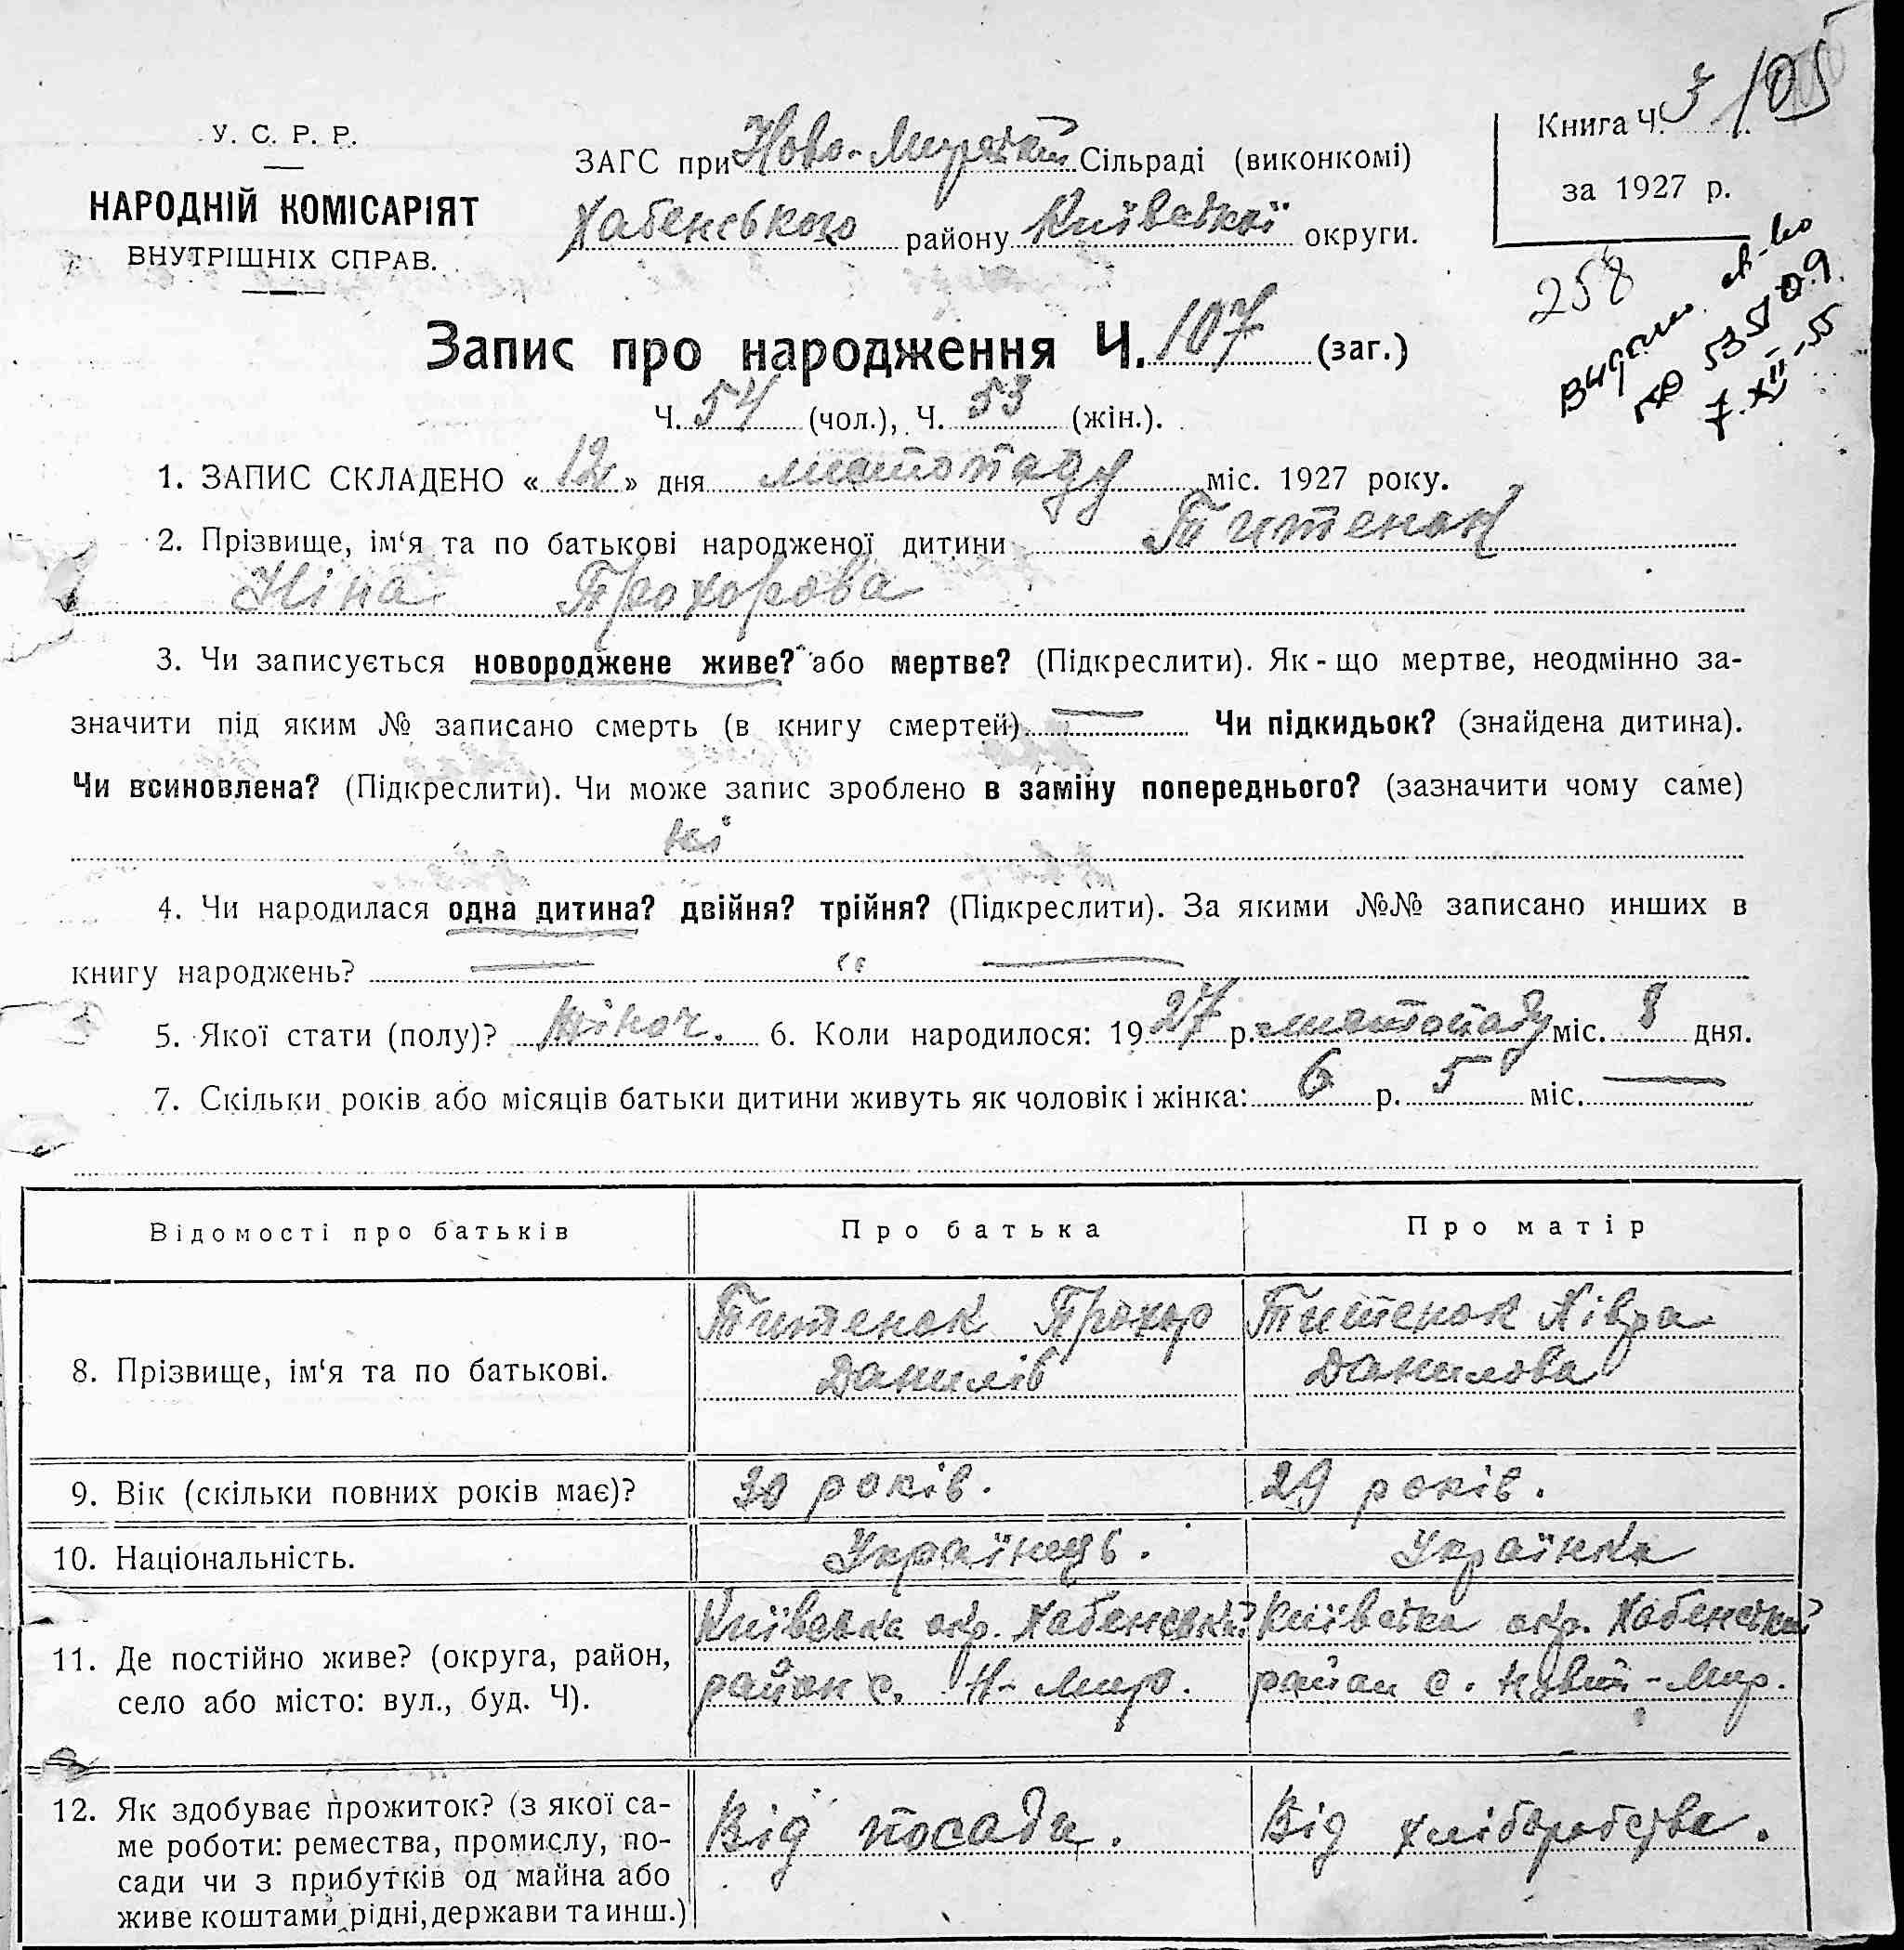 У. С. Р. Р.
НАРОДНІЙ КОМІСАРІЯТ
ВНУТРІШНІХ СПРАВ.
ЗАГС при Ново-Мирській Сільраді (виконкомі)
Хабенського району Київської округи.
Книга Ч. 3 105
за 1927 р.
258
Видано св-во
53551 09.
7.XII-55
Запис про народження Ч. 107 (заг.)
Ч. 54 (чол.), Ч. 53 (жін.).
1. ЗАПИС СКЛАДЕНО «12» дня листопаду міс. 1927 року.
2. Прізвище, ім‘я та по батькові народженої дитини Титенок
Ніна Прохорова
3. Чи записується новороджене живе? або мертве? (Підкреслити). Як-що мертве, неодмінно за-
значити під яким № записано смерть (в книгу смертей) — Чи підкидьок? (знайдена дитина).
Чи всиновлена? (Підкреслити). Чи може запис зроблено в заміну попереднього? (зазначити чому саме)
ні
4. Чи народилася одна дитина? двійня? трійня? (Підкреслити). За якими №№ записано инших в
книгу народжень? — „ —
5. Якої стати (полу)? жіноч. 6. Коли народилося: 1927 р. листопаду міс. 8 дня.
7. Скільки років або місяців батьки дитини живуть як чоловік і жінка: 6 р. 5 міс. —
Відомості про батьків Про батька Про матір
8. Прізвище, ім‘я та по батькові.
Титенок Прохор
Данилів
Титенок Хівра
Данилова
9. Вік (скільки повних років має)? 30 років. 29 років.
10. Національність. Українець. Українка
11. Де постійно живе? (округа, район,
село або місто: вул., буд. Ч).
Київська окр. Хабенський
район с. Н-Мир.
Київська окр. Хабенський
район с. Новий-Мир.
12. Як здобуває прожиток? (з якої са-
ме роботи: ремества, промислу, по-
сади чи з прибутків од майна або
живе коштами рідні, держави та инш.)
Від посади.
Від хліборобства.